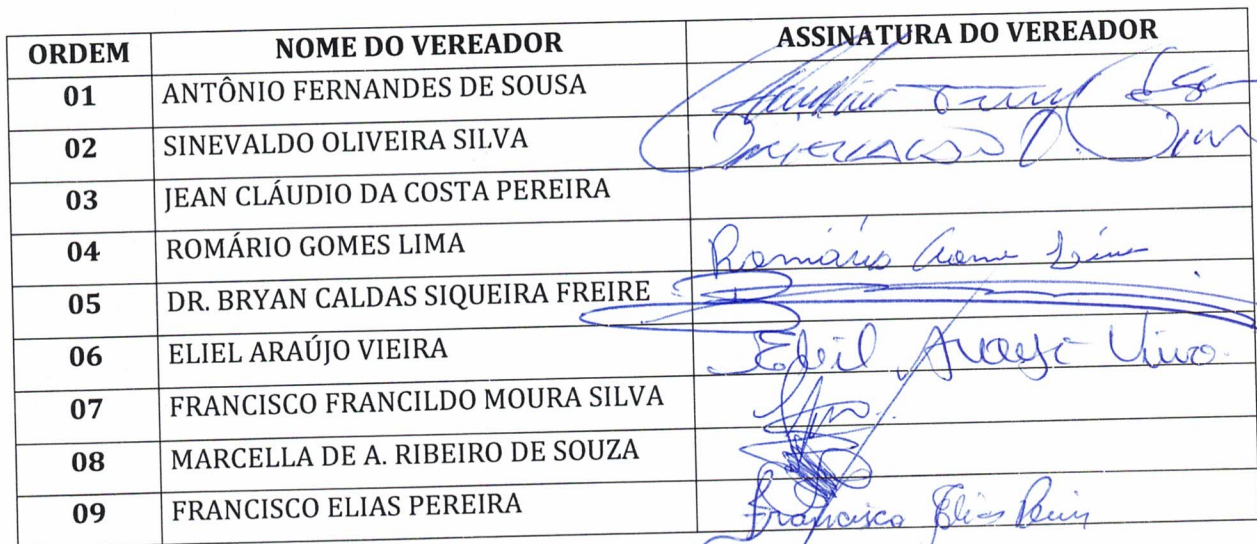 ORDEM NOME DO VEREADOR ASSINATURA DO VEREADOR
01 ANTÔNIO FERNANDES DE SOUSA
02 SINEVALDO OLIVEIRA SILVA
03 JEAN CLÁUDIO DA COSTA PEREIRA
04 ROMÁRIO GOMES LIMA Romário Gome Lima
05 DR. BRYAN CALDAS SIQUEIRA FREIRE
06 ELIEL ARAÚJO VIEIRA
07 FRANCISCO FRANCILDO MOURA SILVA
08 MARCELLA DE A. RIBEIRO DE SOUZA
09 FRANCISCO ELIAS PEREIRA Francisco Elias